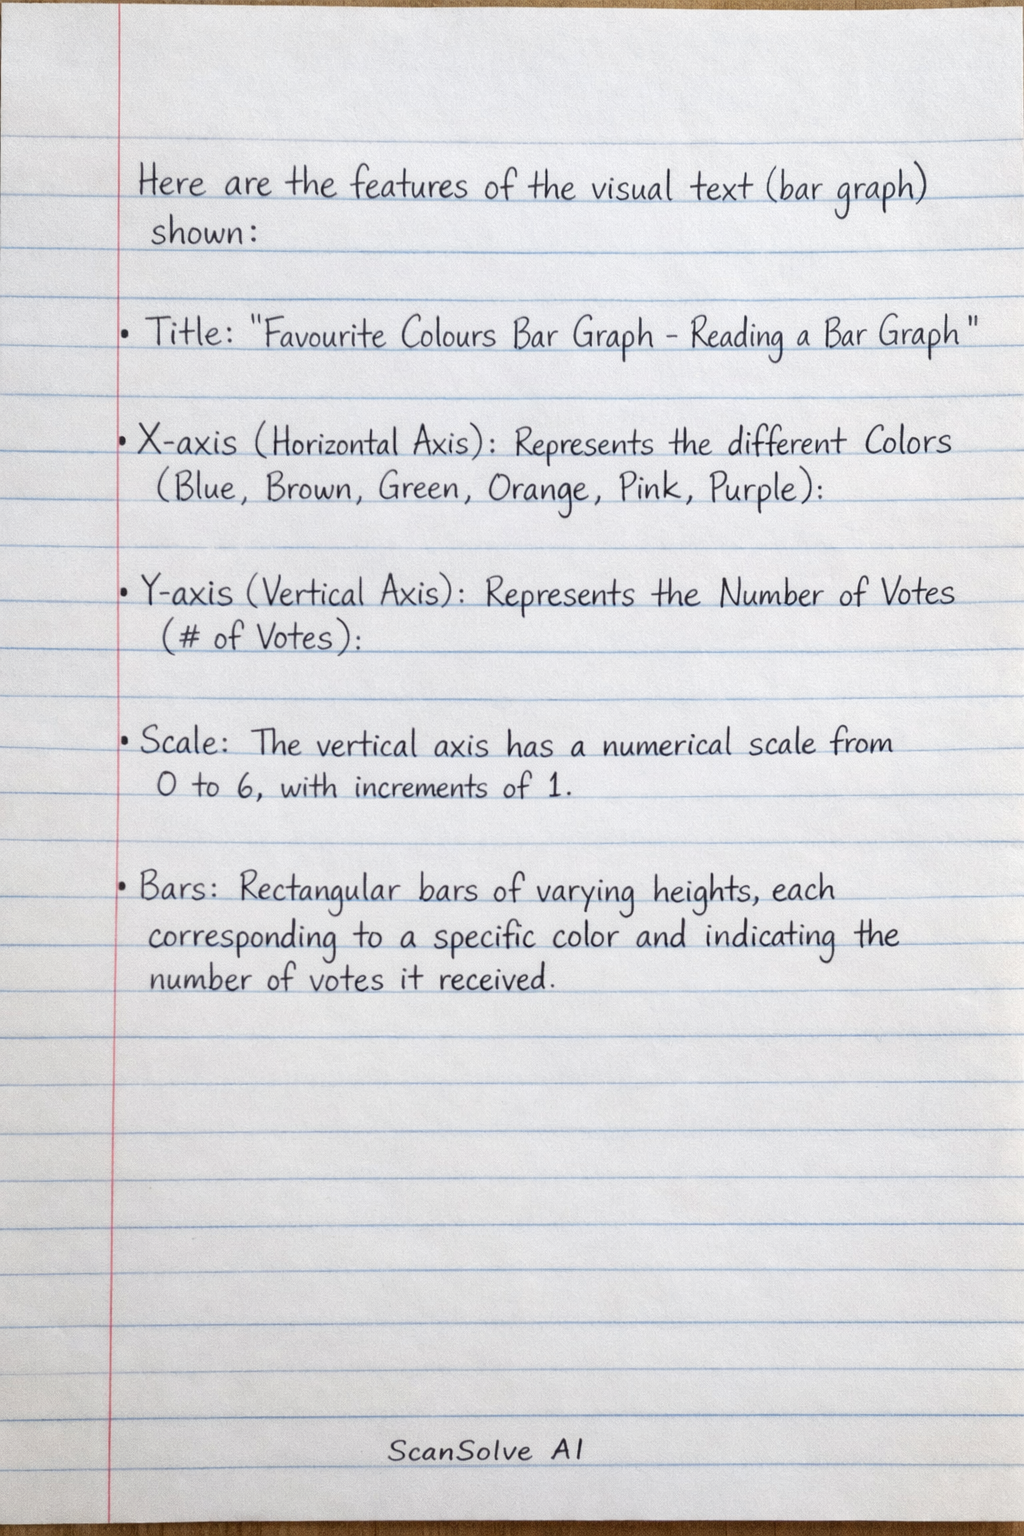 Here are the features of the visual text (bar graph)
shown:
• Title: "Favourite Colours Bar Graph - Reading a Bar Graph"
• X-axis (Horizontal Axis): Represents the different Colors
(Blue, Brown, Green, Orange, Pink, Purple):
• Y-axis (Vertical Axis): Represents the Number of Votes
(# of Votes):
• Scale: The vertical axis has a numerical scale from
0 to 6, with increments of 1.
• Bars: Rectangular bars of varying heights, each
corresponding to a specific color and indicating the
number of votes it received.
ScanSolve AI